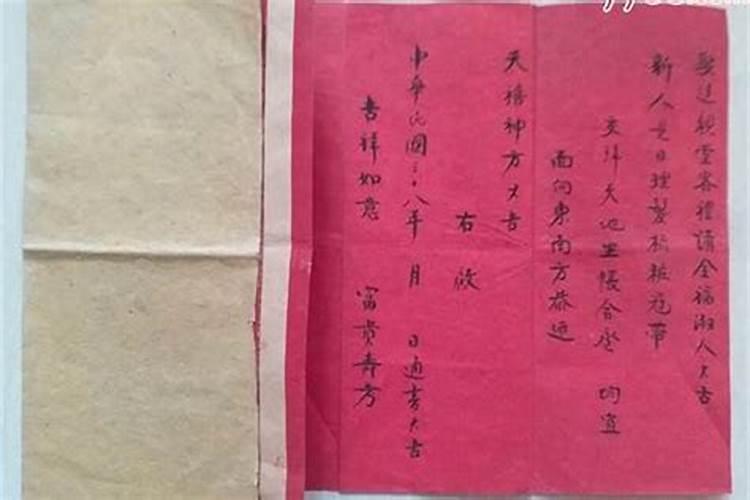 娶送親堂客禮請全福淑人大吉
新人是日理髮梳粧冠帶
交拜天地坐帳合卺 均宜
面向東南方恭迎
天禧神方大吉
右啟
中華民國三十八年 月 日適音大吉
吉祥如意 富貴壽方